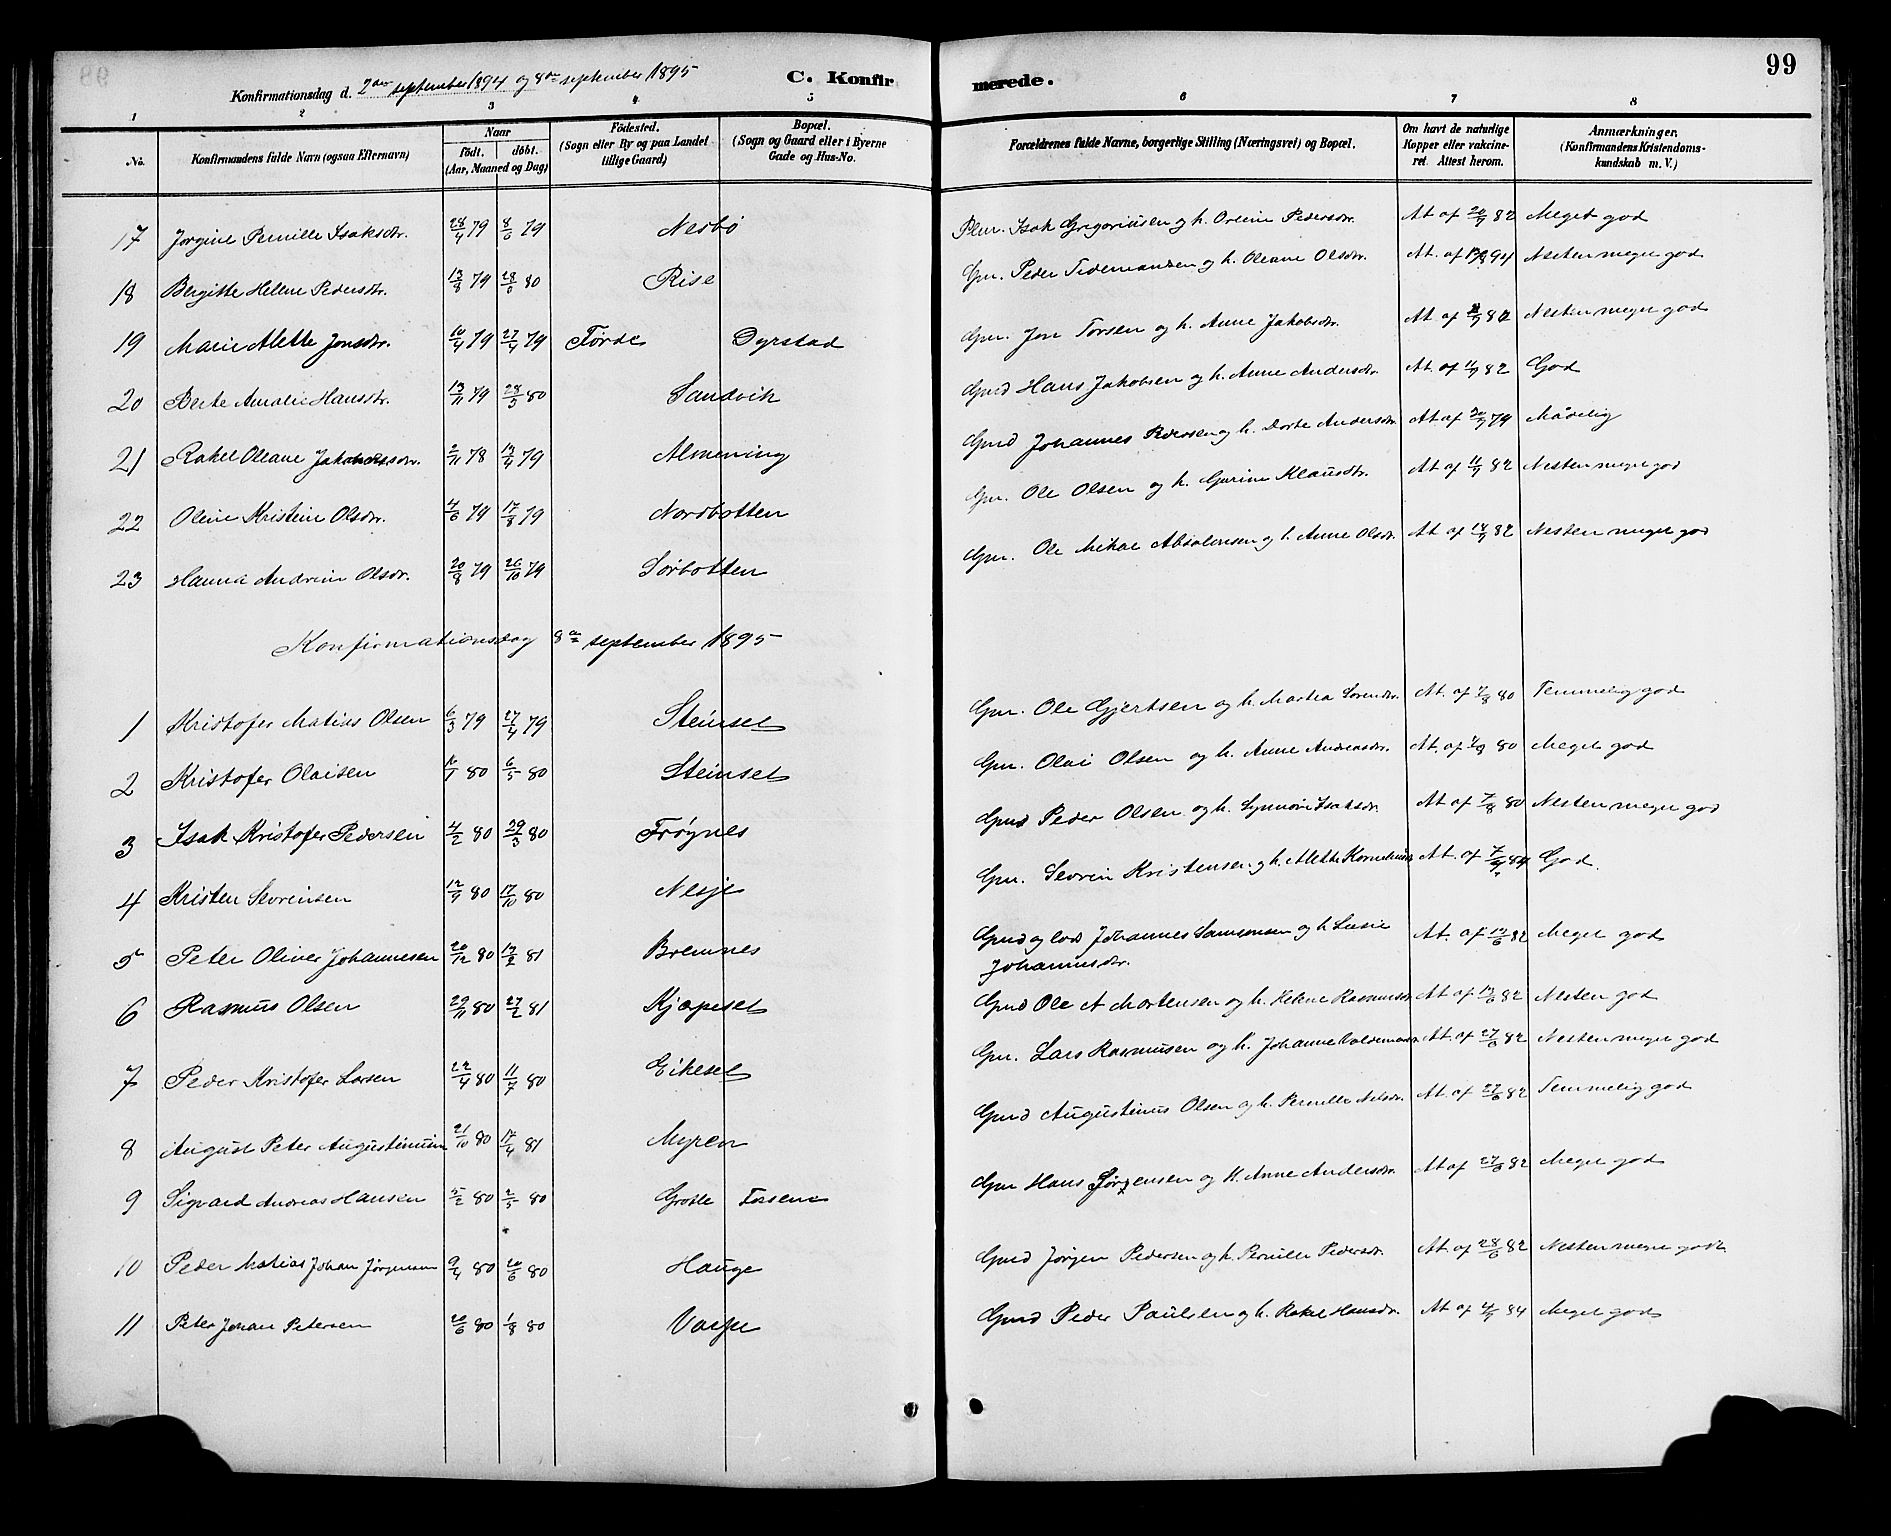 99
Konfirmationsdag d. 2den september 1894 og 8de september 1895
C. Konfirmerede.
1 2 3 4 5 6 7 8
No.
Konfirmandens fulde Navn (ogsaa Efternavn)
Naar
født. døbt.
(Aar, Maaned og Dag)
Fødested.
(Sogn eller By og paa Landet
tillige Gaard)
Bopæl.
(Sogn og Gaard eller i Byerne
Gade og Hus-No.
Forældrenes fulde Navne, borgerlige Stilling (Næringsvei) og Bopæl.
Om havt de naturlige
Kopper eller vakcine-
ret. Attest herom.
Anmærkninger.
(Konfirmandens Kristendoms-
kundskab m. V.)
17 Jørgine Pernille Isaksdr. 28/4 79 8/6 79 Nesbø Plm. Isak Gregoriussen og h. Oleine Pedersdr. At. af 20/7 82 Meget god
18 Bergitte Helene Pedersdr. 13/8 79 80 Rise Gm. Peder Tidemansen og h. Oleane Olsdr. At. af 94 Nesten meget god
19 Marie Alette Jonsdr. 10/4 79 27/4 79 Førde Dyrstad Gm. Jon Torsen og h. Anne Jakobsdr. At af 82 Nesten meget god
20 Berte Amalie Hansdr. 13/11 79 28/3 80 Sandvik Gmd Hans Jakobsen og h. Anne Andersdr. At. af 11/7 82 God
21 Rakel Oleane Johannesdr. 2/11 78 13/4 79 Almening Gmd Johannes Pedersen og h. Dorte Andersdr. At af 79 Mådelig
22 Oline Kristine Olsdr. 4/6 79 17/8 79 Nordbotten Gm. Ole Olsen og h. Gurine Klausdr. At af 11/7 82 Nesten meget god
23 Hanna Andrine Olsdr. 20/8 79 26/10 79 Sørbotten Gm. Ole Mikal Absalonsen og h. Anne Olsdr. At af 14/7 82 Nesten meget god
Konfirmationsdag 8de september 1895
1 Kristofer Matias Olsen 6/3 79 27/4 79 Steinset Gm. Ole Gjertsen og h. Martea Sørensdr. At. af 7/8 80 Temmelig god
2 Kristofer Olaisen 80 6/5 80 Steinset Gm. Olai Olsen og h. Anne Andersdr. At. af 7/8 80 Meget god
3 Isak Kristofer Pedersen 4/2 80 29/3 80 Frøynes Gmd Peder Olsen og h. Synnøve Isaksdr. At af 7/8 80 Nesten meget god
4 Kristen Severinsen 12/9 80 17/10 80 Nesje Gm. Severin Kristensen og h. Alette Korneliusdr At. af 84 God.
5 Peter Oliver Johannesen 20/12 80 13/2 81 Bremnes Gmd og lods Johannes Samsonsen og h. Lusie At. af 82 Meget god
Johannesdr.
6 Rasmus Olsen 29/11 80 27/2 81 Kjøpeset Gmd Ole A Mortensen og h. Helene Rasmusdr At af 82 Nesten god
7 Peder Kristofer Larsen 22/4 80 11/7 80 Eikeset Gm. Lars Rasmusen og h. Johanne At. af 27/6 82 Nesten meget god
8 August Peter Augustinusen 21/10 80 17/4 81 Myren Gmd Augustinus Olsen og h. Pernille Nilsdr. At. af 27/6 82 Temmelig god
9 Sigvard Andreas Hansen 5/2 80 2/5 80 Grotle Gm Hans Jørgensen og h. Anne Andersdr. At af 27/6 82 Meget god
10 Peder Matias Johan Jørgensen 9/4 80 20/6 80 Hauge Gmd Jørgen Pedersen og h. Pernille Pedersdr. At. af 28/6 82 Nesten meget godt
11 Peter Johan Petersen 20/6 80 1/8 80 Varpe Gmd Peder Paulsen og h. Rakel Hansdr. At af 84 Meget god